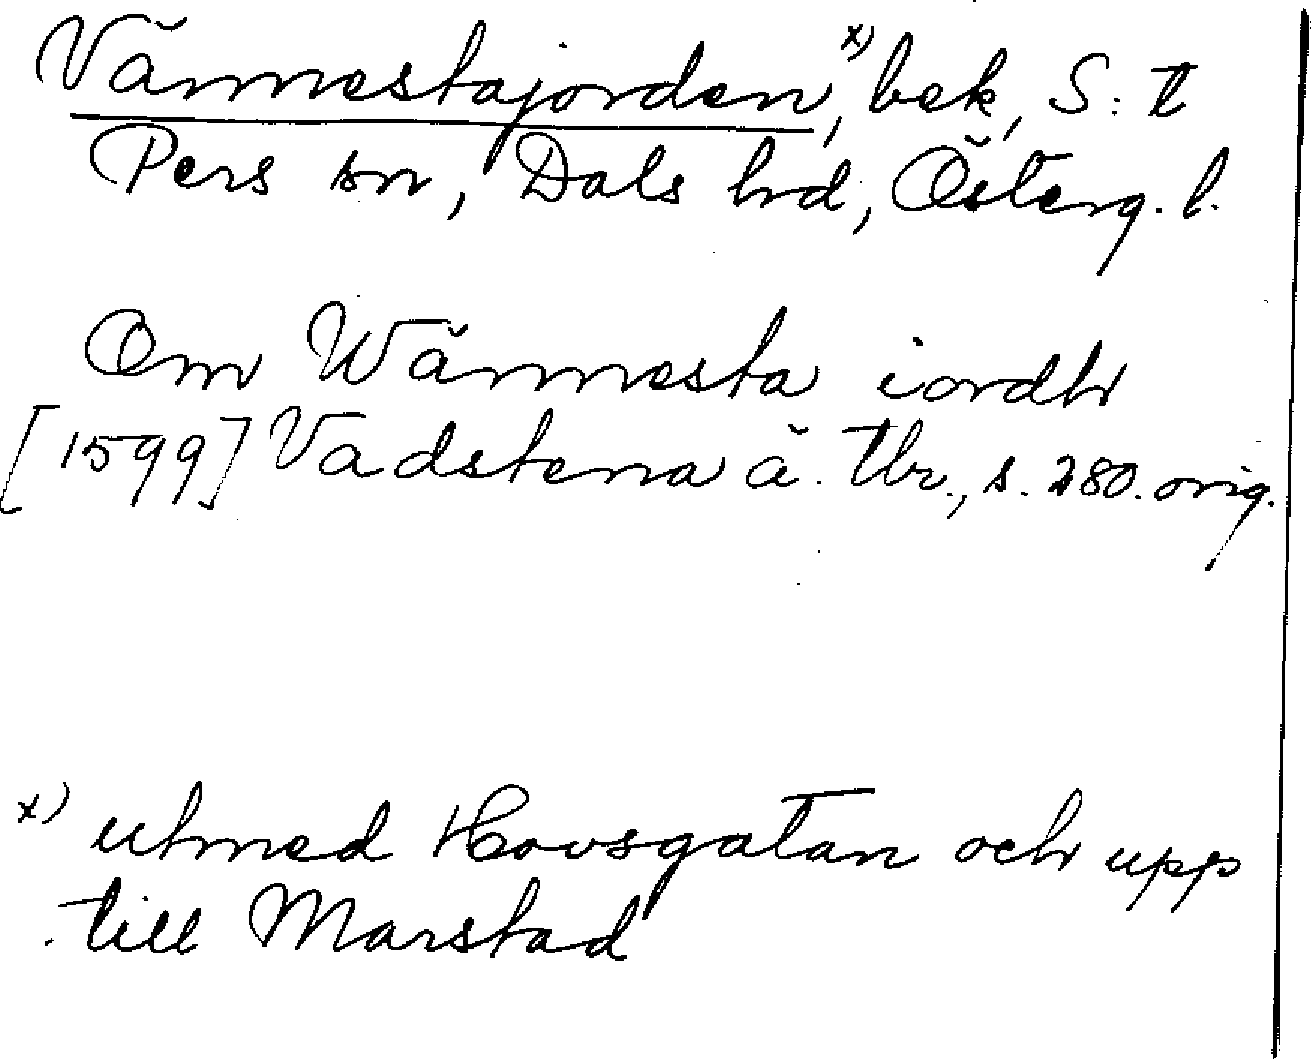 Vännestajorden,x) bek, S:t
Pers sn, Dals hd, Österg. l.
Om Wännesta iordh
[1599] Vadstena ä. tbr., s. 280. orig.
x) utmed Hovsgatan och upp
till Marstad